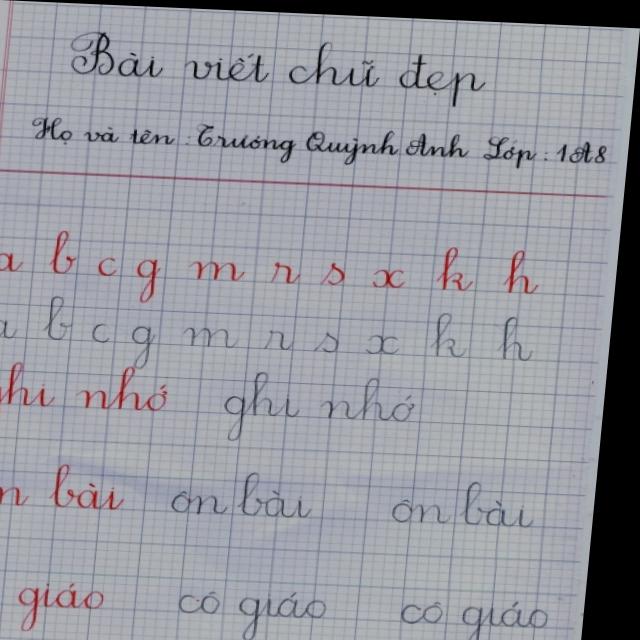 Bài viết chữ đẹp
Họ và tên : Trương Quỳnh Anh Lớp : 1A8
a b c g m r s x k h
a b c g m r s x k h
ghi nhớ ghi nhớ
ôn bài ôn bài ôn bài
giáo cô giáo cô giáo